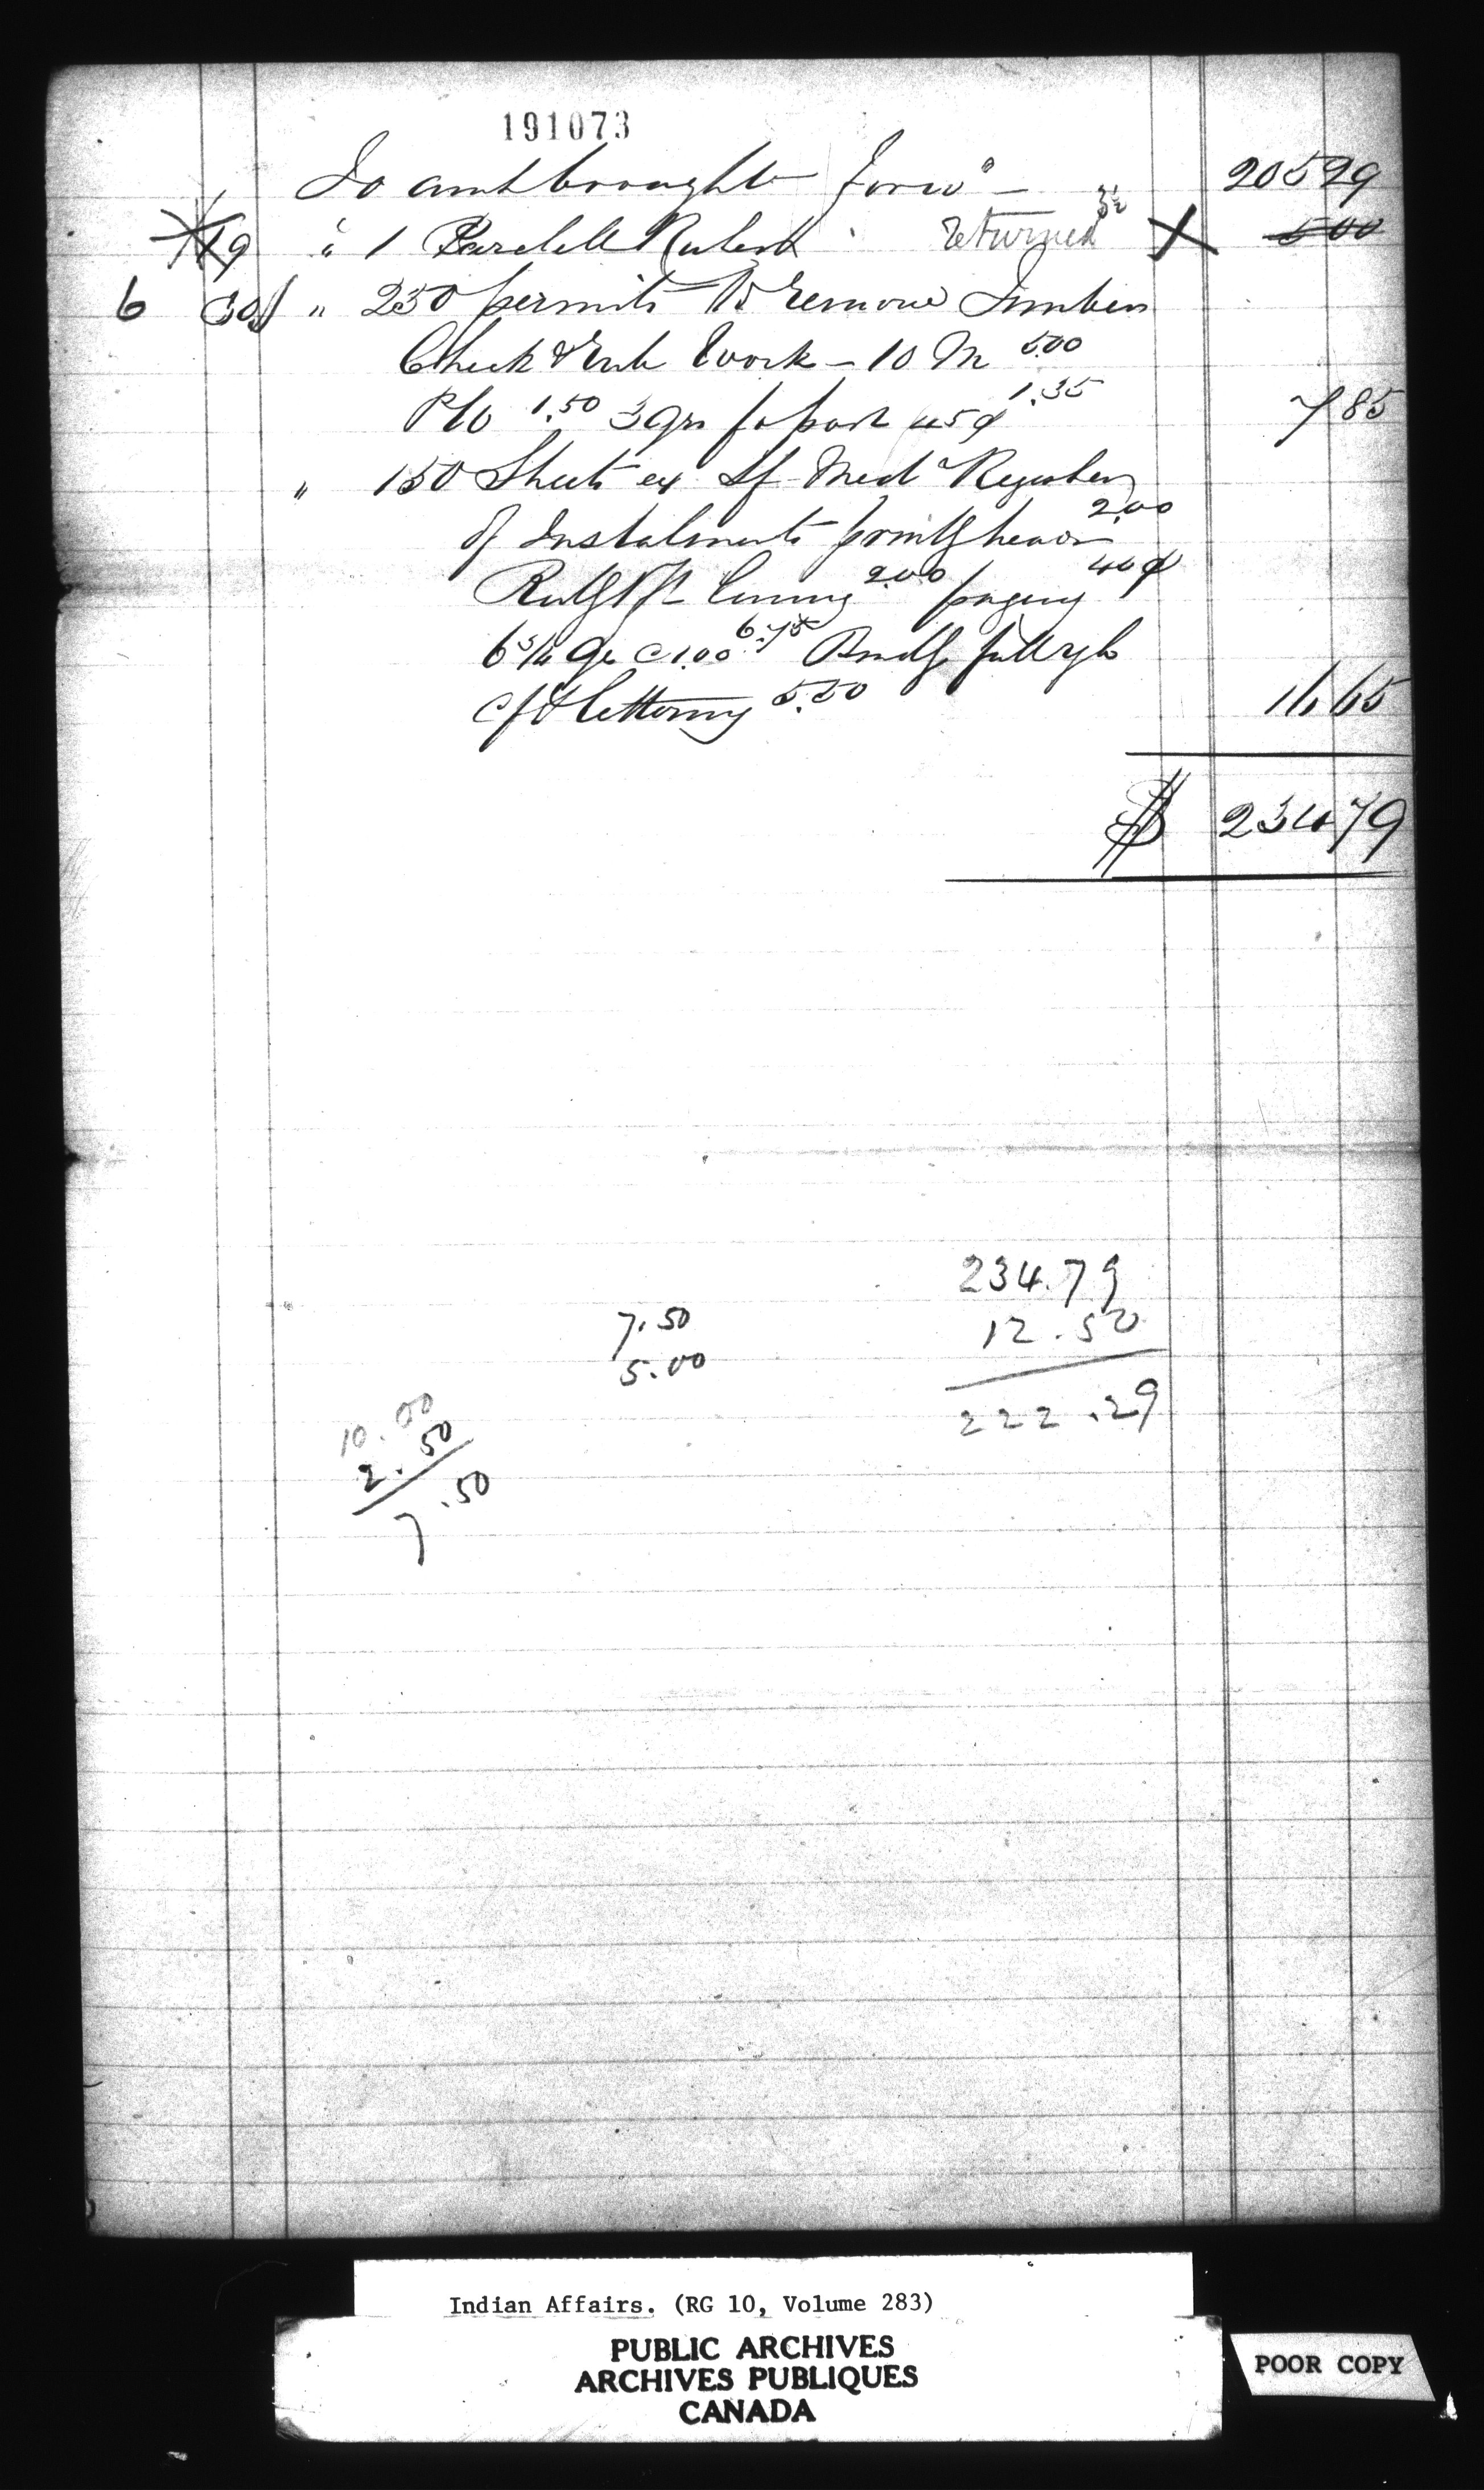 191073
To amt brought forwd — 205 29
19 " 1 Parelell Ruler Returned X 5 00
6 30 " 250 permits to remove Timber
Check & Rule Work — 10 M 5.00
P/w 1.50 3 qrs fo post 45¢ 1.35 7 85
" 150 Sheets ex Sf Med Register
of Instalments printg heads 2.00
Rulg 2.00 paging 40¢
6 3/4 qr @ 1.00 6.75 Bindg full
c/f & lettering 5.50 16 65
$ 234 79
234.79
12.50
222.29
7.50
5.00
10.00
2.50
7.50
Indian Affairs. (RG 10, Volume 283)
PUBLIC ARCHIVES
ARCHIVES PUBLIQUES
CANADA
POOR COPY